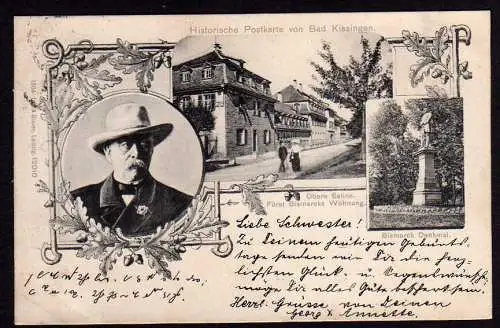 Historische Postkarte von Bad Kissingen.
Obere Saline.
Fürst Bismarcks Wohnung.
Bismarck Denkmal.
Liebe Schwester!
Zu Deinem heutigen Geburts-
tage senden wir Dir die herz-
lichsten Glück- u. Segenswünsche
möge Dir alles Gute beschert sein.
Herzl. Grüsse von Deinen
Georg & Annette.